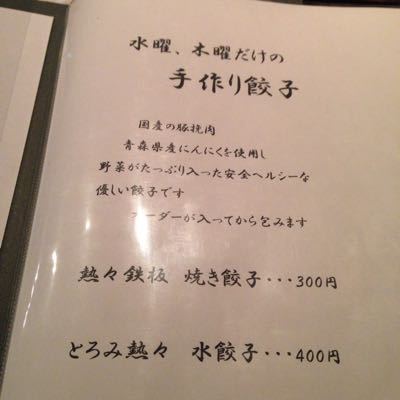 水曜、木曜だけの
手作り餃子
国産の豚挽肉
青森県産にんにくを使用し
野菜がたっぷり入った安全ヘルシーな
優しい餃子です
オーダーが入ってから包みます
熱々鉄板 焼き餃子・・・300円
とろみ熱々 水餃子・・・400円